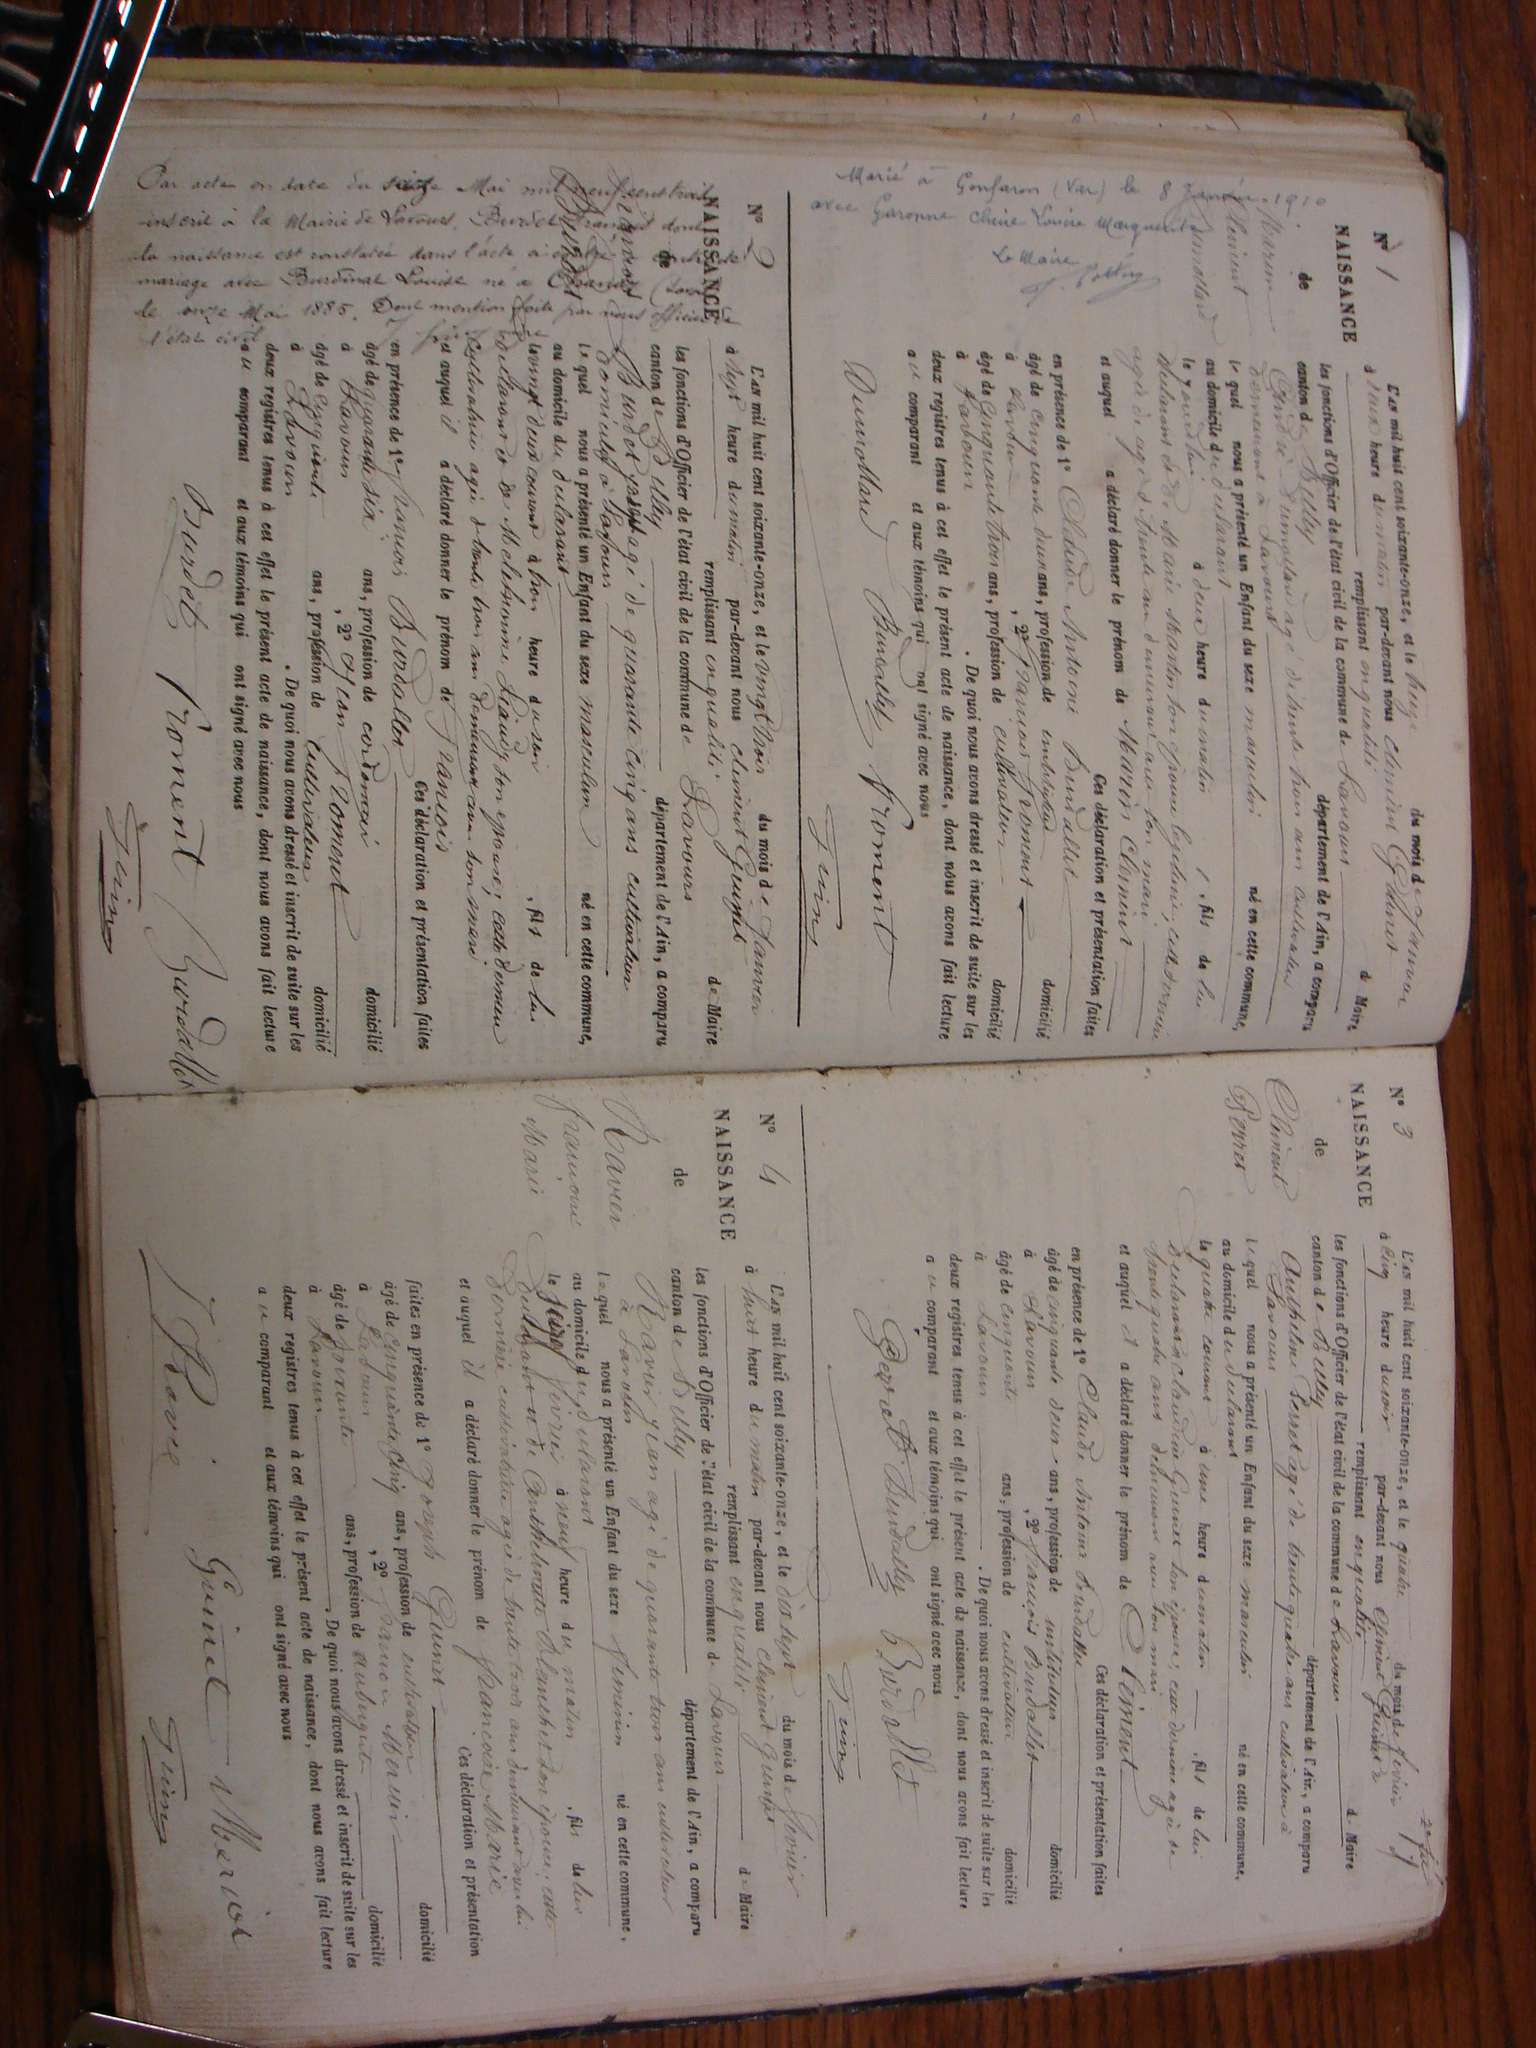 Marié à Gonfaron (Var) le 8 Janvier 1910
avec Garonne Claire Louise Marguerite
Le Maire
N° 1
NAISSANCE
de
Dumollard
Clément
Marin
L'an mil huit cent soixante-onze, et le treize du mois de Janvier
à heure du matin par-devant nous Clément Guinet
remplissant en qualité de Maire
les fonctions d'Officier de l'état civil de la commune de Lavours
canton de Belley département de l'Ain, a comparu
Dumollard agé de trente trois ans cultivateur
demeurant à Lavours
lequel nous a présenté un Enfant du sexe masculin né en cette commune,
au domicile du déclarant
le jourd'hui à deux heure du matin, fils de lui
déclarant et de Marie Marton son épouse cette dernière
agée de trente un demeurant avec son mari
et auquel a déclaré donner le prénom de Marin Clément
Ces déclaration et présentation faites
en présence de 1° Claude Antoine Burdallet
âgé de cinquante deux ans, profession de instituteur domicilié
à Lavours, 2° François Froment
âgé de cinquante trois ans, profession de cultivateur domicilié
à Lavours. De quoi nous avons dressé et inscrit de suite sur les
deux registres tenus à cet effet le présent acte de naissance, dont nous avons fait lecture
au comparant et aux témoins qui ont signé avec nous
Dumollard Burdallet Froment
N° 2
NAISSANCE
de
Burdet
François
Par acte en date du seize Mai mil neuf cent trois
inscrit à la Mairie de Lavours, Burdet François dont
la naissance est constatée dans l'acte a contracté
mariage avec Burdinat Louise né à Chanaz
le onze Mai 1885. Dont mention faite par nous officier de
l'état civil
L'an mil huit cent soixante-onze, et le vingt trois du mois de Janvier
à sept heure du matin par-devant nous Clément Guinet
remplissant en qualité de Maire
les fonctions d'Officier de l'état civil de la commune de Lavours
canton de Belley département de l'Ain, a comparu
Burdet agé de quarante cinq ans cultivateur
domicilié à Lavours
lequel nous a présenté un Enfant du sexe masculin né en cette commune,
au domicile du déclarant
le vingt deux courant à trois heure du soir, fils de lui
déclarant et de son épouse, cette dernière
cultivatrice agée de trente trois ans demeurant avec son mari
et auquel il a déclaré donner le prénom de François
Ces déclaration et présentation faites
en présence de 1° François Burdallet
âgé de quarante six ans, profession de cordonnier domicilié
à Lavours, 2° Jean Froment
âgé de cinquante ans, profession de cultivateur domicilié
à Lavours. De quoi nous avons dressé et inscrit de suite sur les
deux registres tenus à cet effet le présent acte de naissance, dont nous avons fait lecture
au comparant et aux témoins qui ont signé avec nous
Burdet Froment Burdallet
N° 3
NAISSANCE
de
Perret
Clément
L'an mil huit cent soixante-onze, et le quatre du mois de février
à cinq heure du soir par-devant nous Clément Guinet
remplissant en qualité de Maire
les fonctions d'Officier de l'état civil de la commune de Lavours
canton de Belley département de l'Ain, a comparu
Anthelme Perret agé de trente quatre ans cultivateur à
Lavours
lequel nous a présenté un Enfant du sexe masculin né en cette commune,
au domicile du déclarant
le quatre courant à une heure du matin, fils de lui
déclarant et de Claudine Guinet son épouse, cette dernière agée de
trente quatre ans demeurant avec son mari
et auquel il a déclaré donner le prénom de Clément
Ces déclaration et présentation faites
en présence de 1° Claude Antoine Burdallet
âgé de cinquante deux ans, profession de instituteur domicilié
à Lavours, 2° François Burdallet
âgé de cinquante ans, profession de cultivateur domicilié
à Lavours. De quoi nous avons dressé et inscrit de suite sur les
deux registres tenus à cet effet le présent acte de naissance, dont nous avons fait lecture
au comparant et aux témoins qui ont signé avec nous
Perret Burdallet Burdallet
N° 4
NAISSANCE
de
Ravier
Françoise
Marie
L'an mil huit cent soixante-onze, et le dix sept du mois de février
à huit heure du matin par-devant nous Clément Guinet
remplissant en qualité de Maire
les fonctions d'Officier de l'état civil de la commune de Lavours
canton de Belley département de l'Ain, a comparu
Ravier Jean agé de quarante trois ans cultivateur
à Lavours
lequel nous a présenté un Enfant du sexe féminin né en cette commune,
au domicile du déclarant
le seize février à neuf heure du matin, fils de lui
déclarant et de Anthelmette Blanchet son épouse, cette
dernière cultivatrice agée de trente trois ans demeurant avec lui
et auquel il a déclaré donner le prénom de Françoise Marie
Ces déclaration et présentation
faites en présence de 1° Joseph Guinet
âgé de cinquante cinq ans, profession de cultivateur domicilié
à Lavours, 2°
âgé de soixante ans, profession de aubergiste domicilié
à Lavours. De quoi nous avons dressé et inscrit de suite sur les
deux registres tenus à cet effet le présent acte de naissance, dont nous avons fait lecture
au comparant et aux témoins qui ont signé avec nous
Guinet